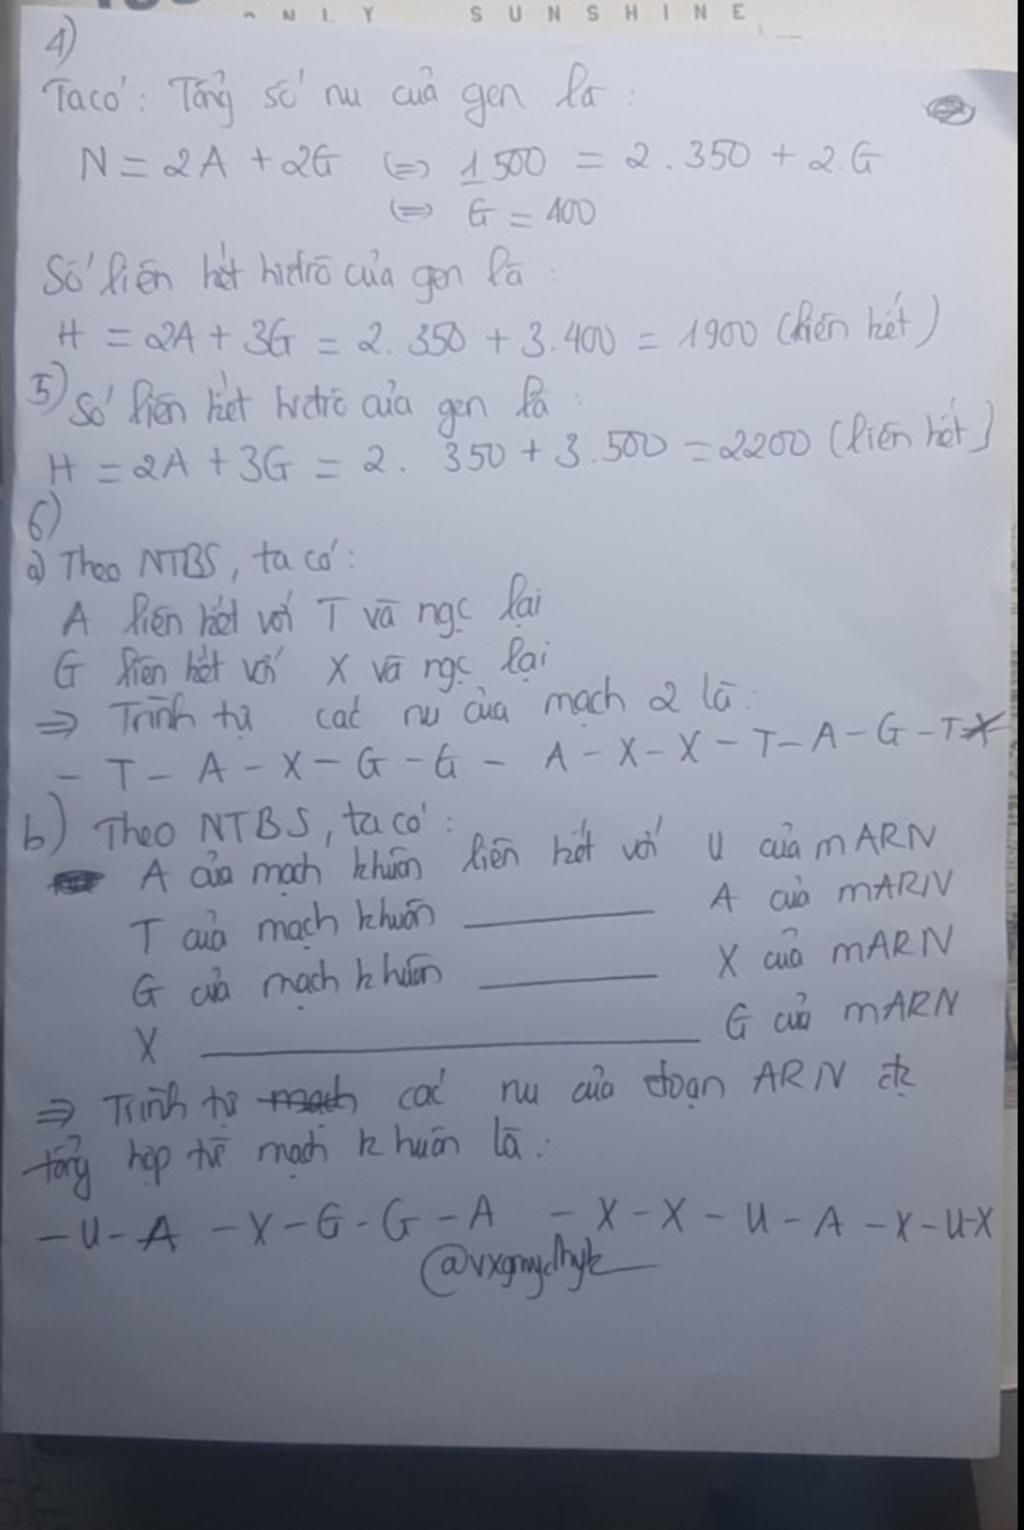 ONLY SUNSHINE
4)
Ta có: Tổng số nu của gen là:
N = 2A + 2G (=) 1500 = 2.350 + 2.G
(=) G = 400
Số liên kết hiđrô của gen là:
H = 2A + 3G = 2.350 + 3.400 = 1900 (liên kết)
5) Số liên kết hiđrô của gen là:
H = 2A + 3G = 2. 350 + 3.500 = 2200 (liên kết)
6)
a) Theo NTBS, ta có:
A liên kết với T và ngc lại
G liên kết với X và ngc lại
=> Trình tự các nu của mạch 2 là:
- T - A - X - G - G - A - X - X - T - A - G - T X
b) Theo NTBS, ta có:
A của mạch khuôn liên kết với U của mARN
T của mạch khuôn ______ A của mARN
G của mạch khuôn ______ X của mARN
X ______ G của mARN
=> Trình tự mạch các nu của đoạn ARN đc
tổng hợp từ mạch khuôn là:
- U - A - X - G - G - A - X - X - U - A - X - U - X